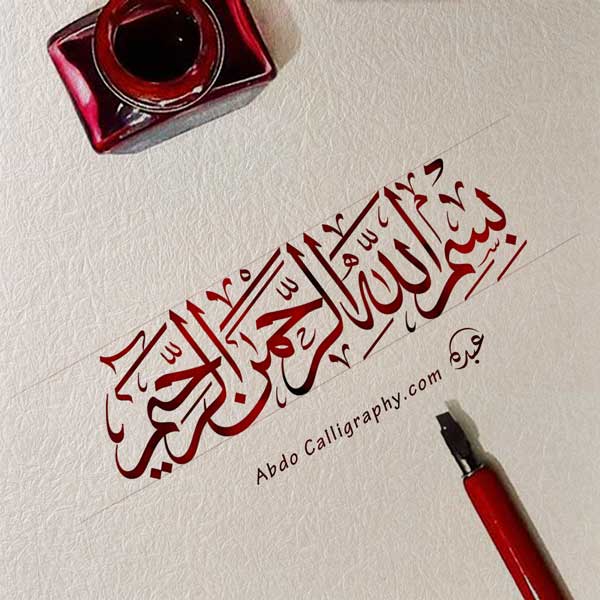 بِسْمِ اللَّهِ الرَّحْمَنِ الرَّحِيمِ
عبده
Abdo Calligraphy.com